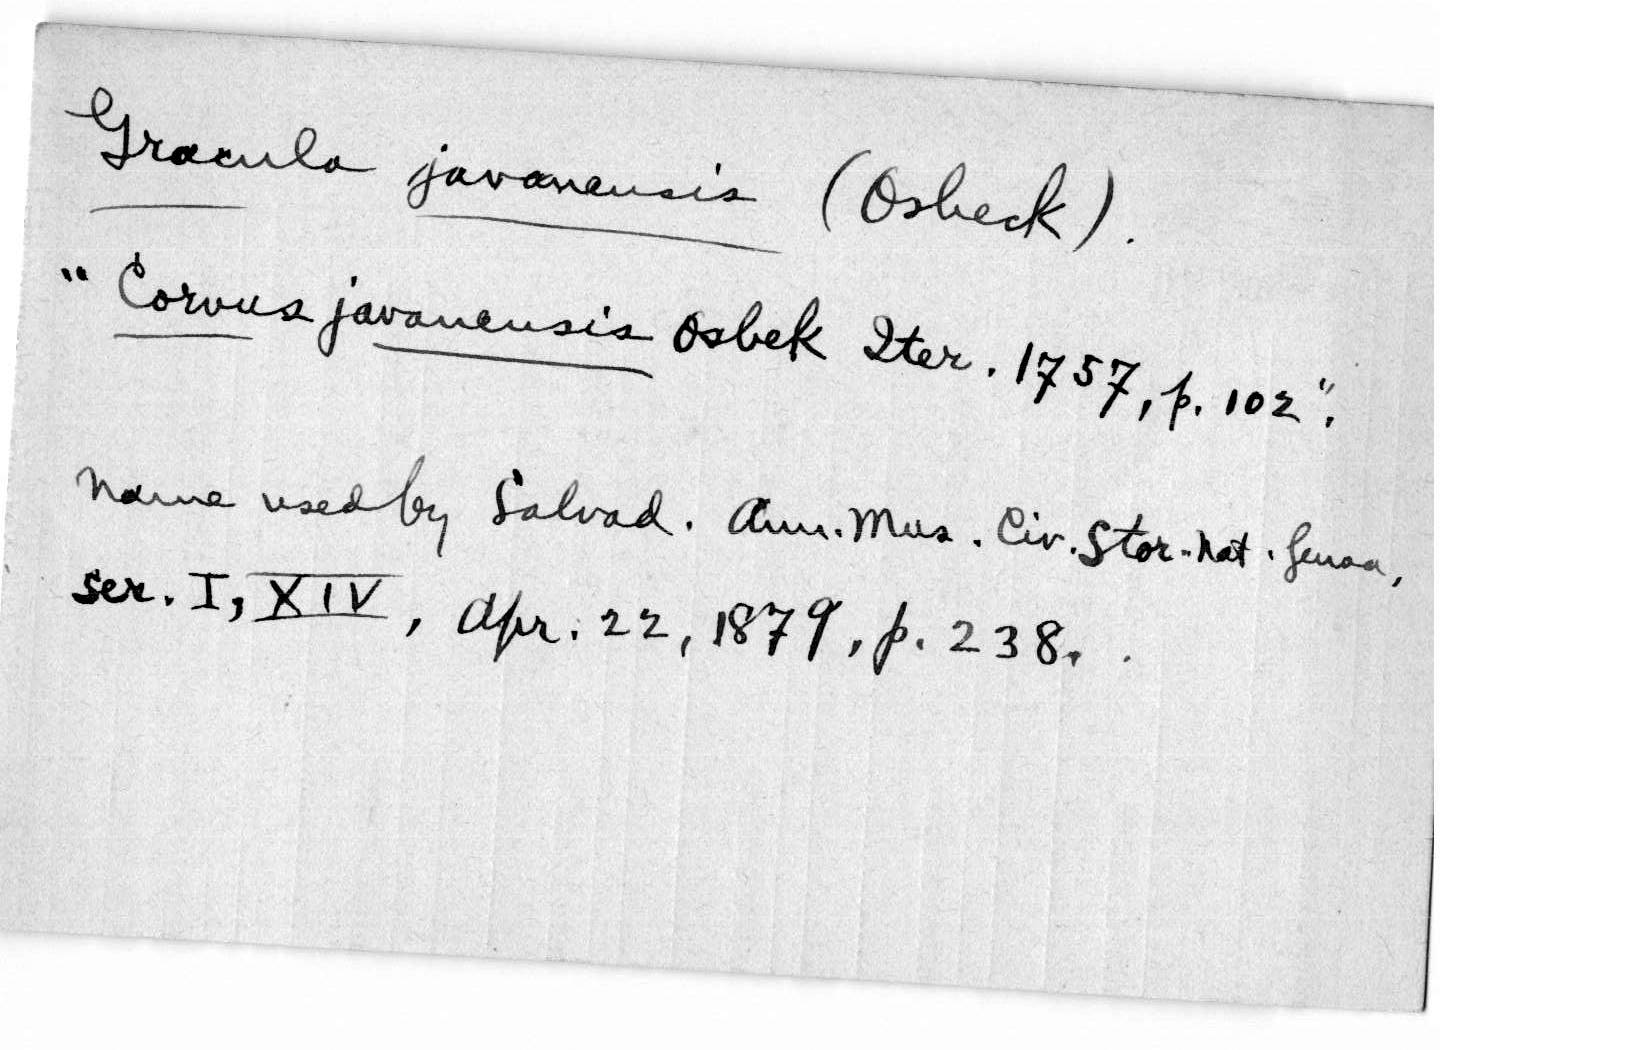 Gracula javanensis (Osbeck).
"Corvus javanensis Osbek Iter. 1757, p. 102".
Name used by Salvad. Ann. Mus. Civ. Stor. Nat. Genoa,
ser. I, XIV, Apr. 22, 1879, p. 238.